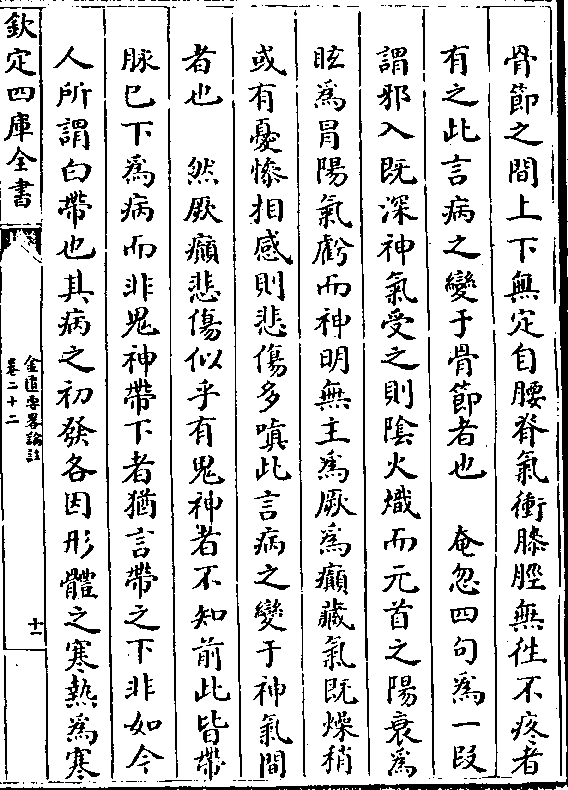 骨節之間上下無定自腰脊氣衝膝脛無往不疼者
有之此言病之變于骨節者也　奄忽四句為一段
謂邪入既深神氣受之則陰火熾而元首之陽衰為
眩為冒陽氣虧而神明無主為厥為癲藏氣既燥稍
或有憂慘相感則悲傷多嗔此言病之變于神氣間
者也　然厥癲悲傷似乎有鬼神者不知前此皆帶
脉巳下為病而非鬼神帶下者猶言帶之下非如今
人所謂白帶也其病之初發各因形體之寒熱為寒
欽定四庫全書
金匱要畧論註
卷二十二
十一